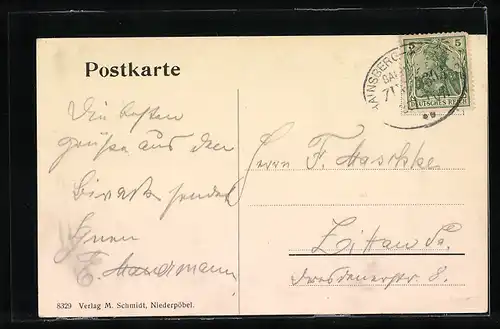 Postkarte
Die besten
grüße aus dem
Biwak sendet
Ihnen
Herrn F. Maschke
Zittau Sa.
Dresdenerstr. 8.
5 5
DEUTSCHES REICH
8329 Verlag M. Schmidt, Niederpöbel.